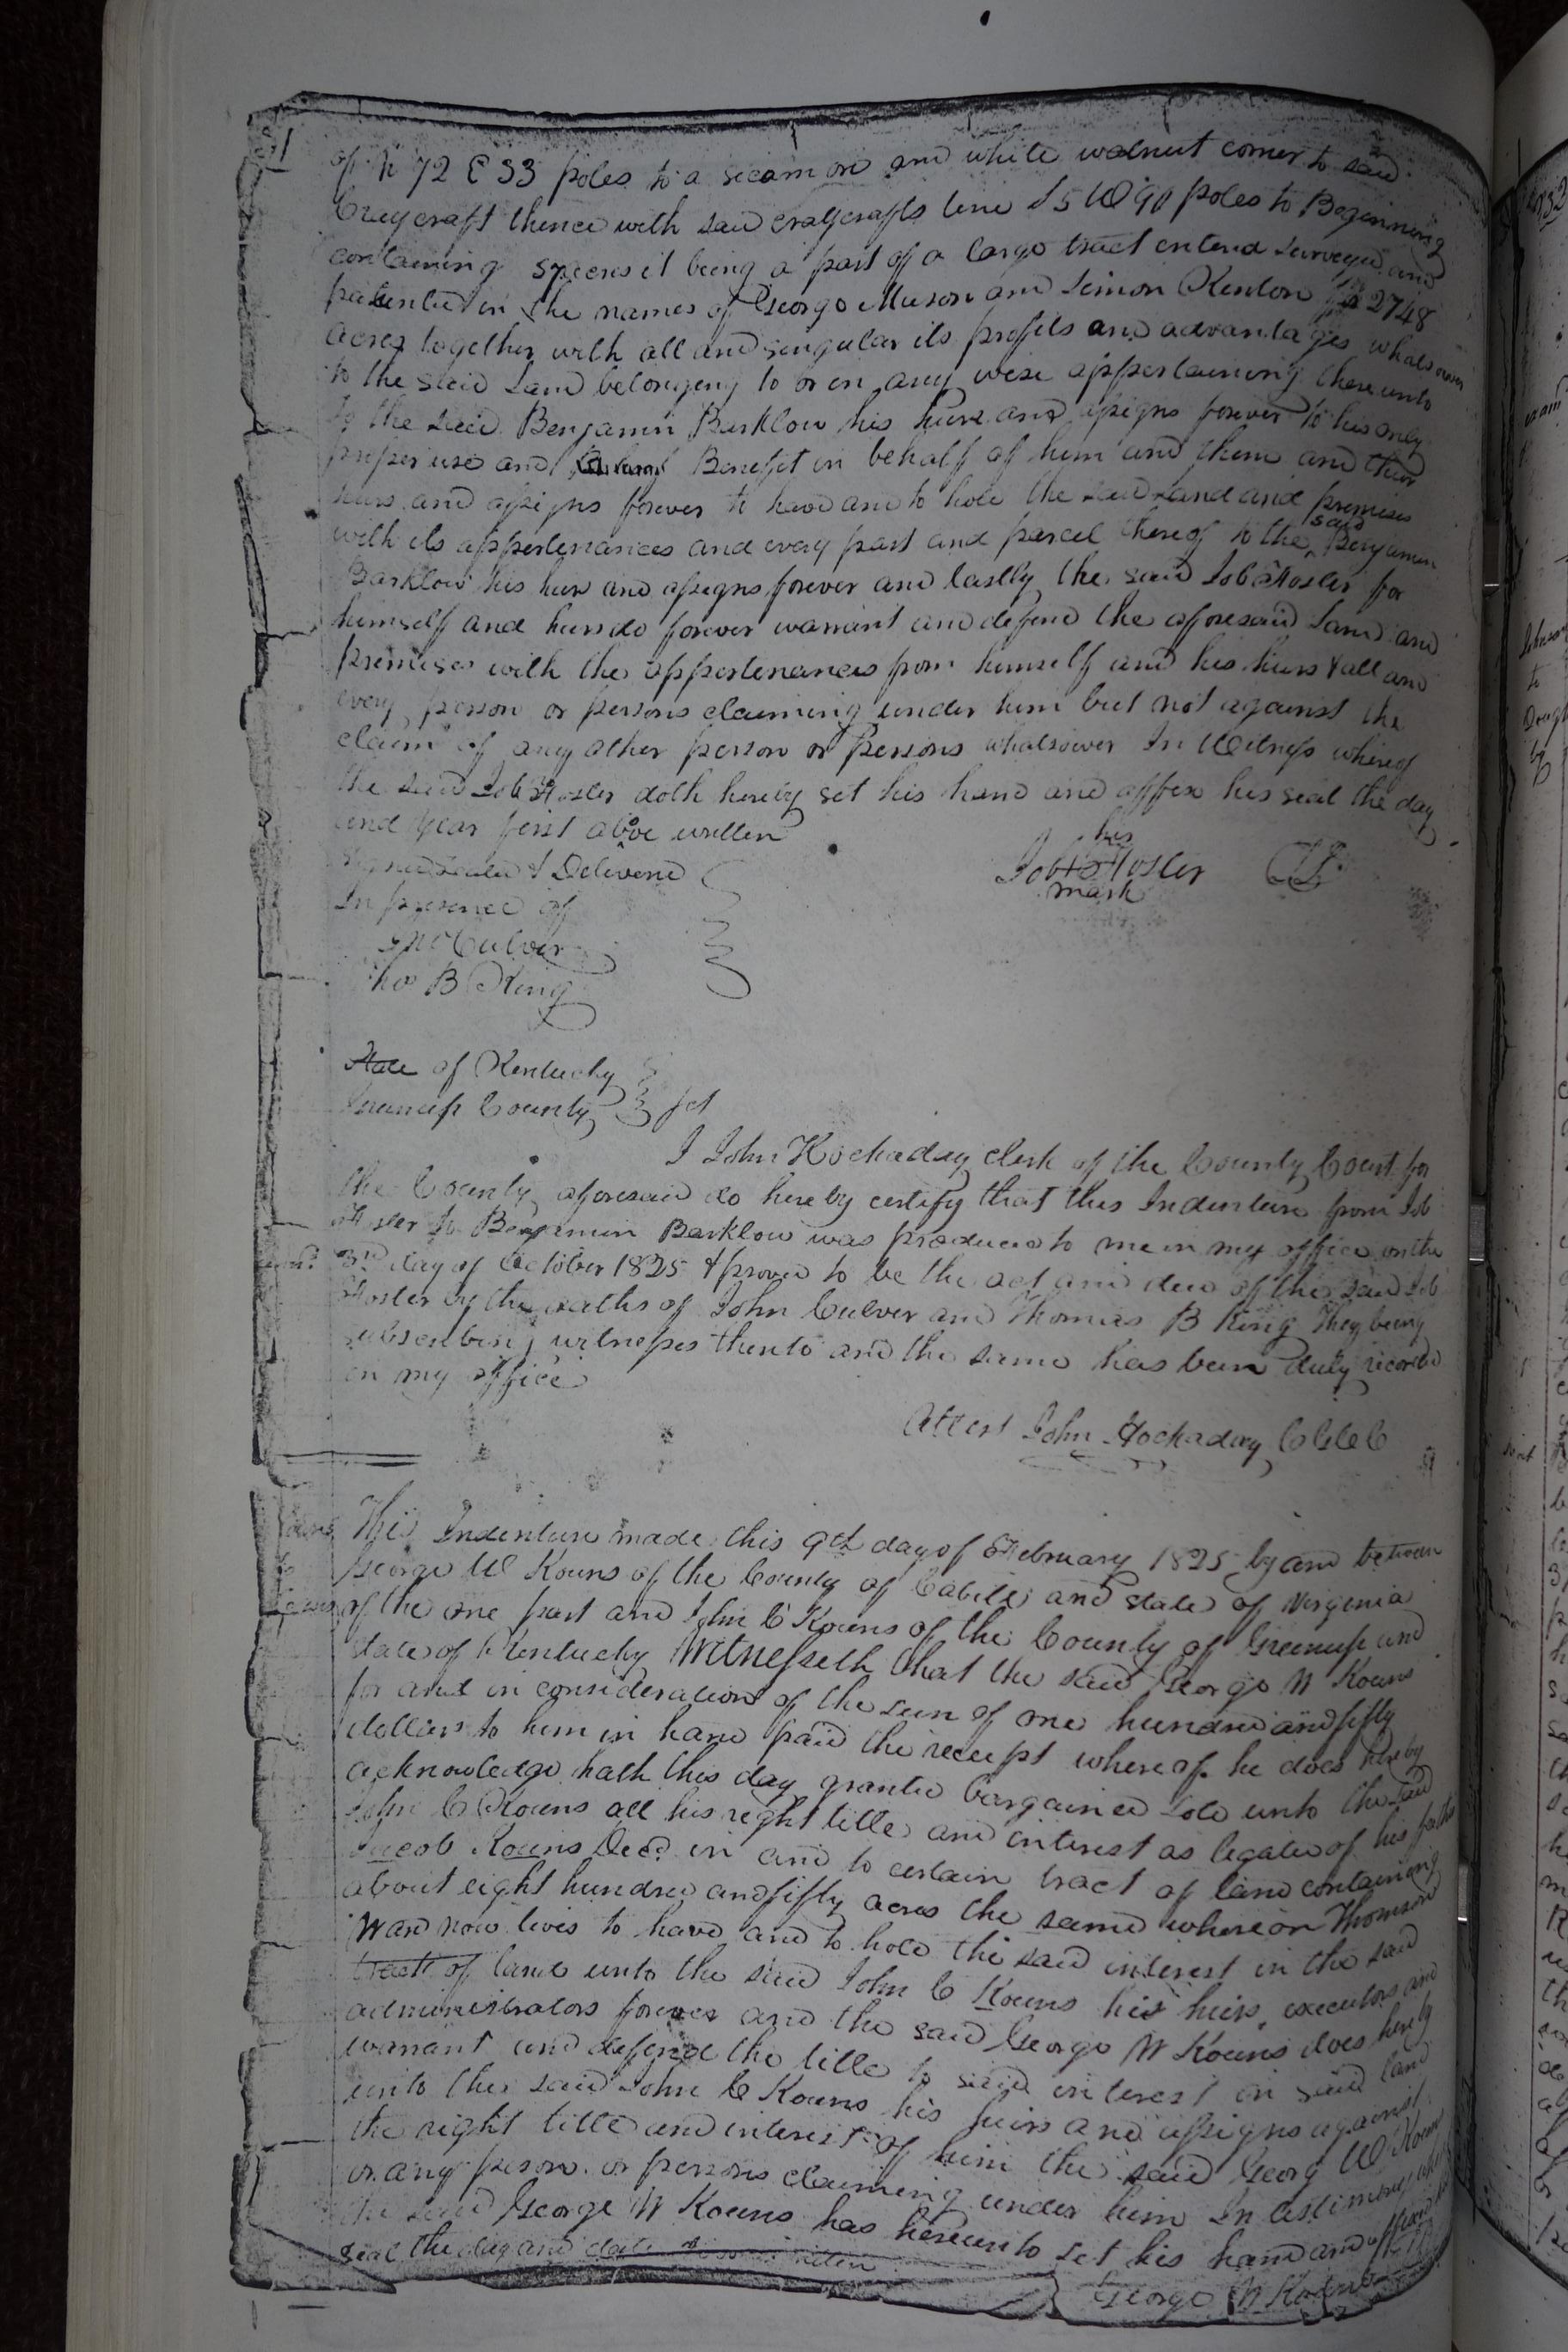 of N 72 E 33 poles to a sicamore and white walnut corner to said
Craycraft thence with said craycrafts line S 5 W 90 poles to Beginning
containing acres it being a part of a large tract enterd surveyed and
patented in the names of George Muson and Simon Kenton for 2748
acres together with all and singular its profits and advantages whatsoever
to the said Land belonging to or in any wise appertaining there unto
to the said Benjamin Barklow his heirs and assigns forever to his only
proper use and Benefit in behalf of him and them and their
heirs and assigns forever to have and to hold the said land and premises
with its appertenances and every part and parcel thereof to the said Benjamin
Barklow his heirs and assigns forever and lastly the said Job Foster for
himself and heirs do forever warrant and defend the aforesaid Land and
premises with the appertenances from himself and his heirs & all and
every person or persons claiming under him but not against the
claim of any other person or persons whatsoever In Witness whereof
the said Job Foster doth hereby set his hand and affix his seal the day
and year first above written
Signed sealed & Delivered
In presence of
Jno Culver
Thos B King
his
Job Foster
mark
State of Kentucky
Greenup County Sct
I John Hockaday clerk of the County Court for
the County aforesaid do hereby certify that this Indenture from Job
Foster to Benjamin Barklow was produced to me in my office on the
3rd day of October 1825 & proved to be the act and deed of the said Job
Foster by the oaths of John Culver and Thomas B King They being
subscribing witnesses thento and the same has been duly recorded
in my office
Attest John Hockaday C G C C
This Indenture made this 9th day of February 1825 by and between
George W Kouns of the County of Cabill and state of Virginia
of the one part and John C Kouns of the County of Greenup and
state of Kentucky Witnesseth that the said George W Kouns
for and in consideration of the sum of one hundred and fifty
dollars to him in hand paid the receipt whereof he does hereby
acknowledge hath this day granted bargained sold unto the said
John C Kouns all his right title and interest as legatee of his father
Jacob Kouns Decd in and to certain tract of land containing
about eight hundred and fifty acres the same whereon Thomson
Ward now lives to have and to hold the said interest in the said
tract of land unto the said John C Kouns his heirs, executors and
administrators forever and the said George W Kouns does hereby
warrant and defend the title to said interest in said land
unto the said John C Kouns his heirs and assigns against
the right title and interest of him the said Georg W Kouns
or any person or persons claiming under him In testimony whereof
the said George W Kouns has hereunto set his hand and affixed his
seal the day and date written
George W Kouns